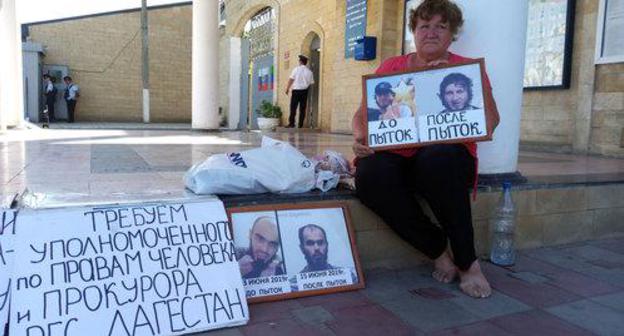 ДО
ПЫТОК
ПОСЛЕ
ПЫТОК
ТРЕБУЕМ
УПОЛНОМОЧЕННОГО
ПО ПРАВАМ ЧЕЛОВЕКА
И ПРОКУРОРА
ДАГЕСТАН
ИЮНЯ
ДО ПЫТОК
15 ИЮНЯ
ПОСЛЕ ПЫТОК